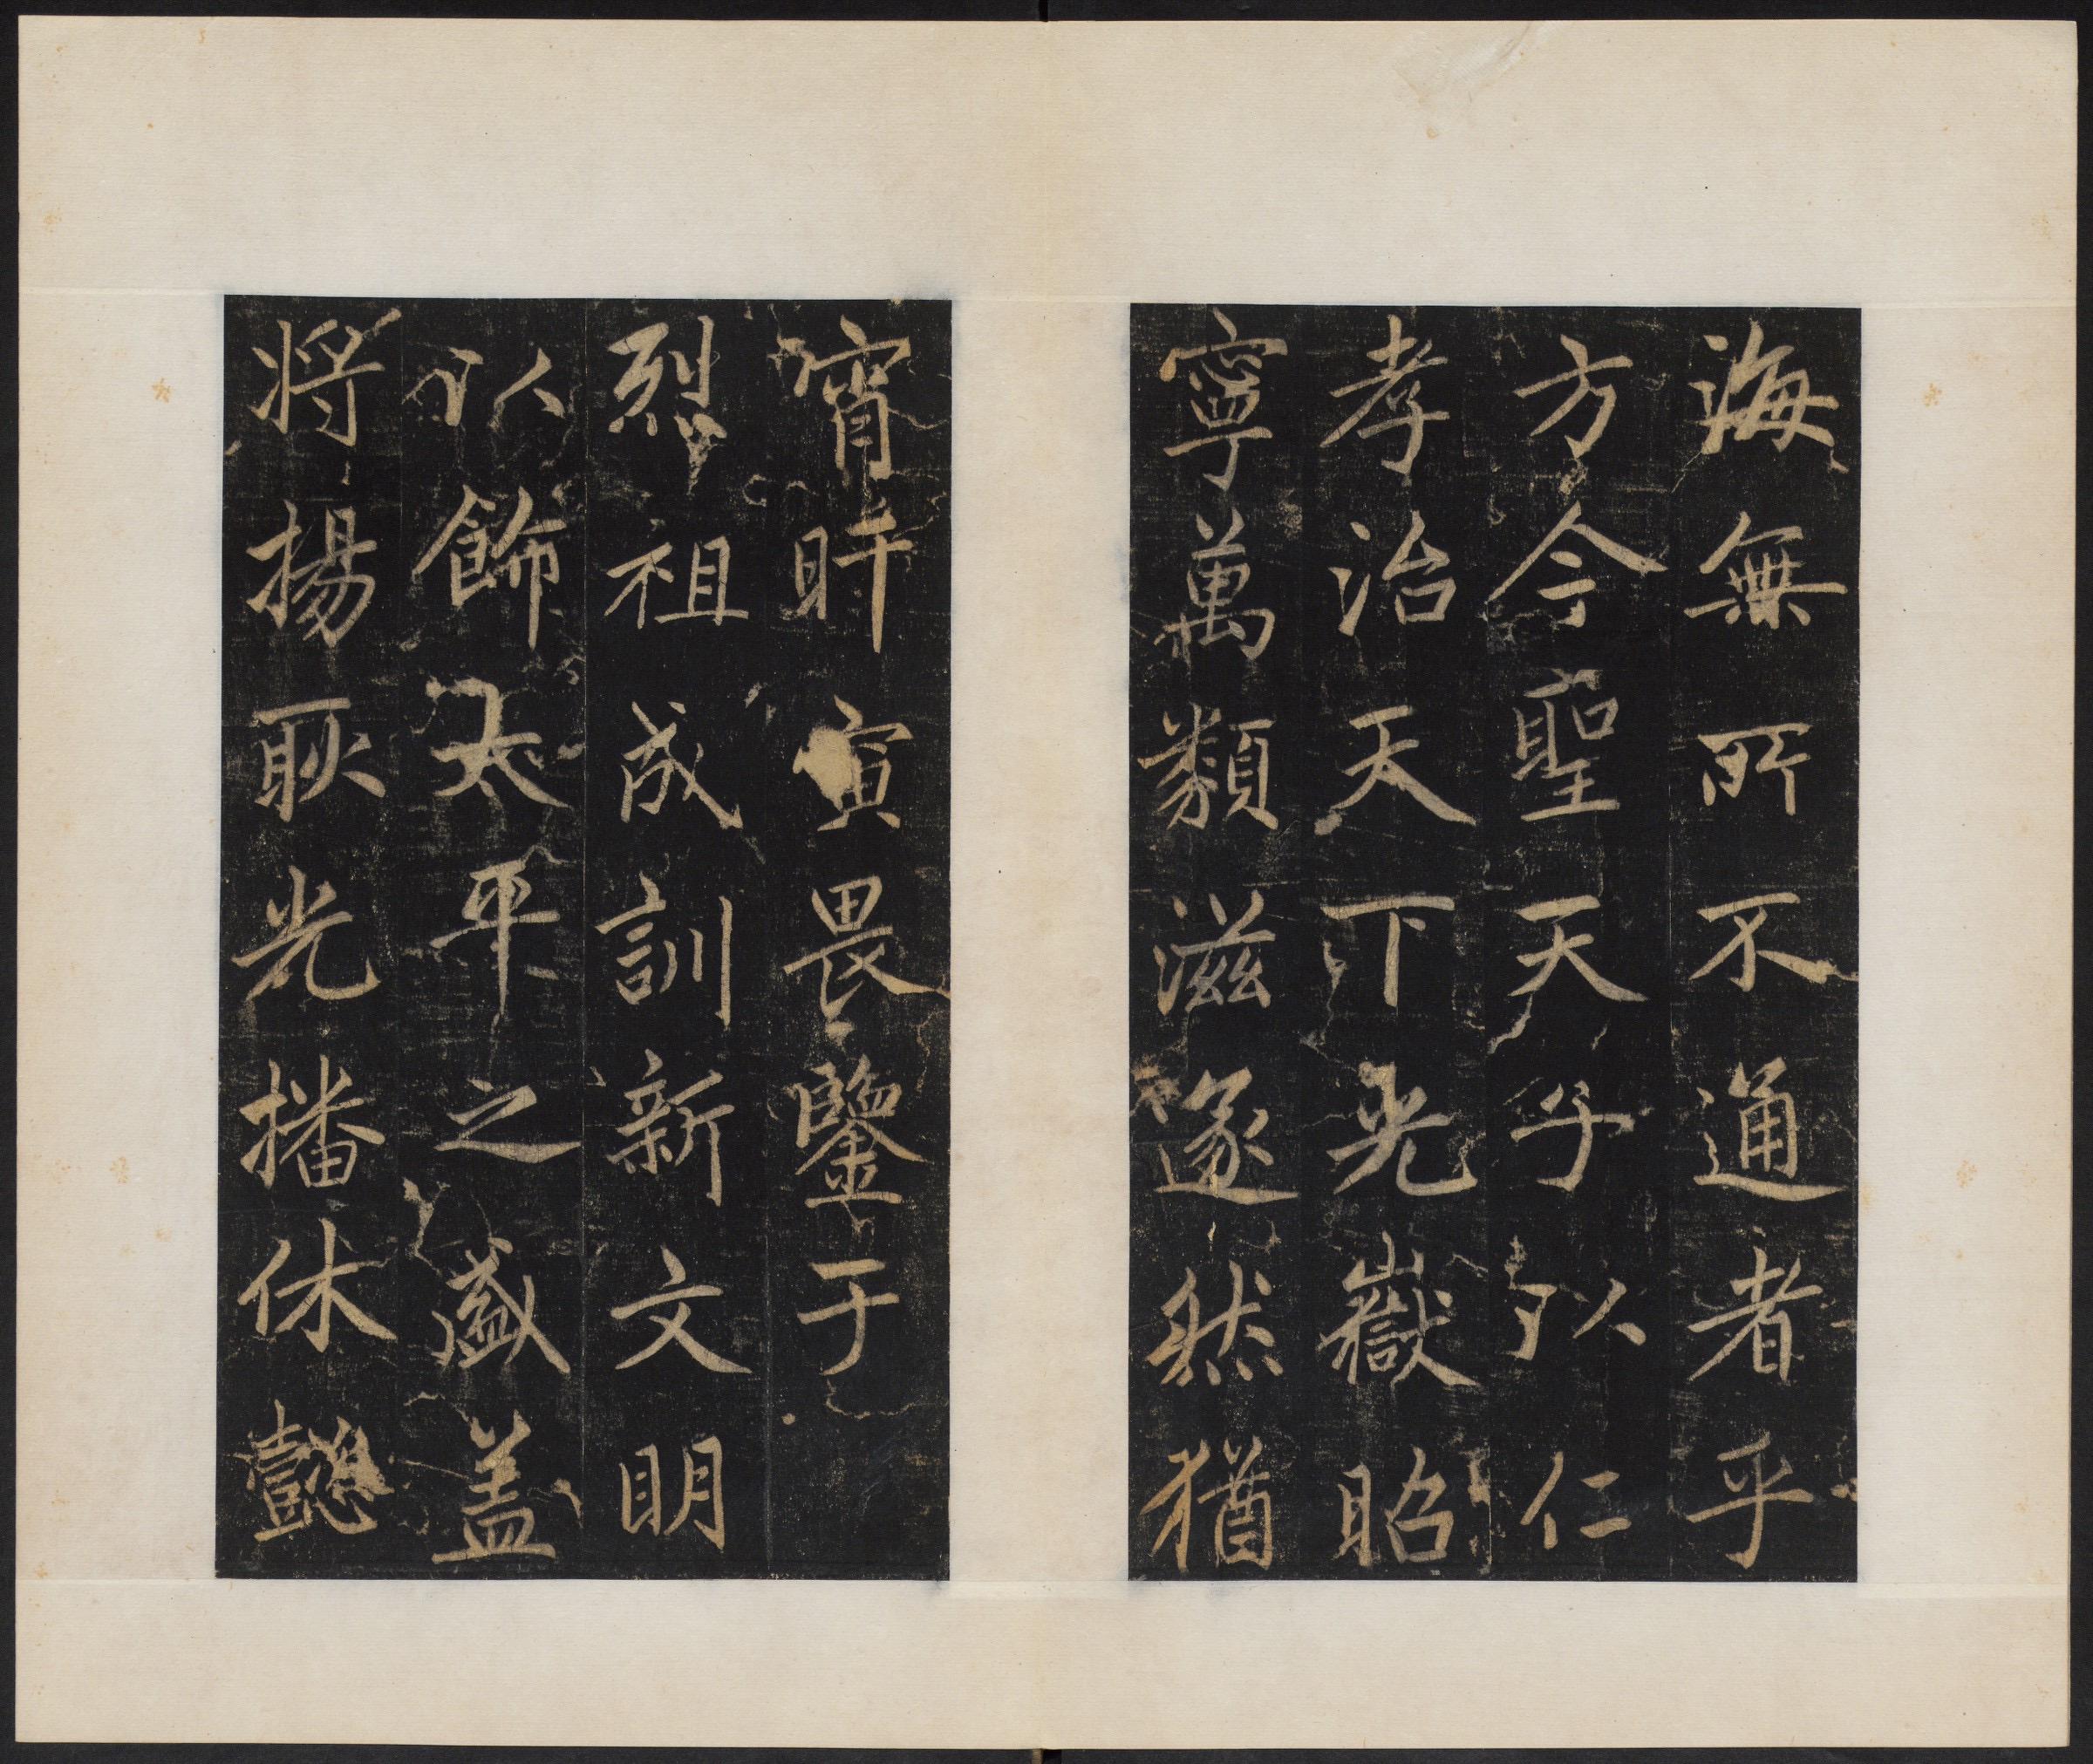 海無所不通者乎
方今聖天子以仁
孝治天下光嶽昭
寧萬類滋遂然猶
宵旰寅畏鑒于
烈祖成訓新文明
以飾太平之盛盖
將揚耿光播休懿